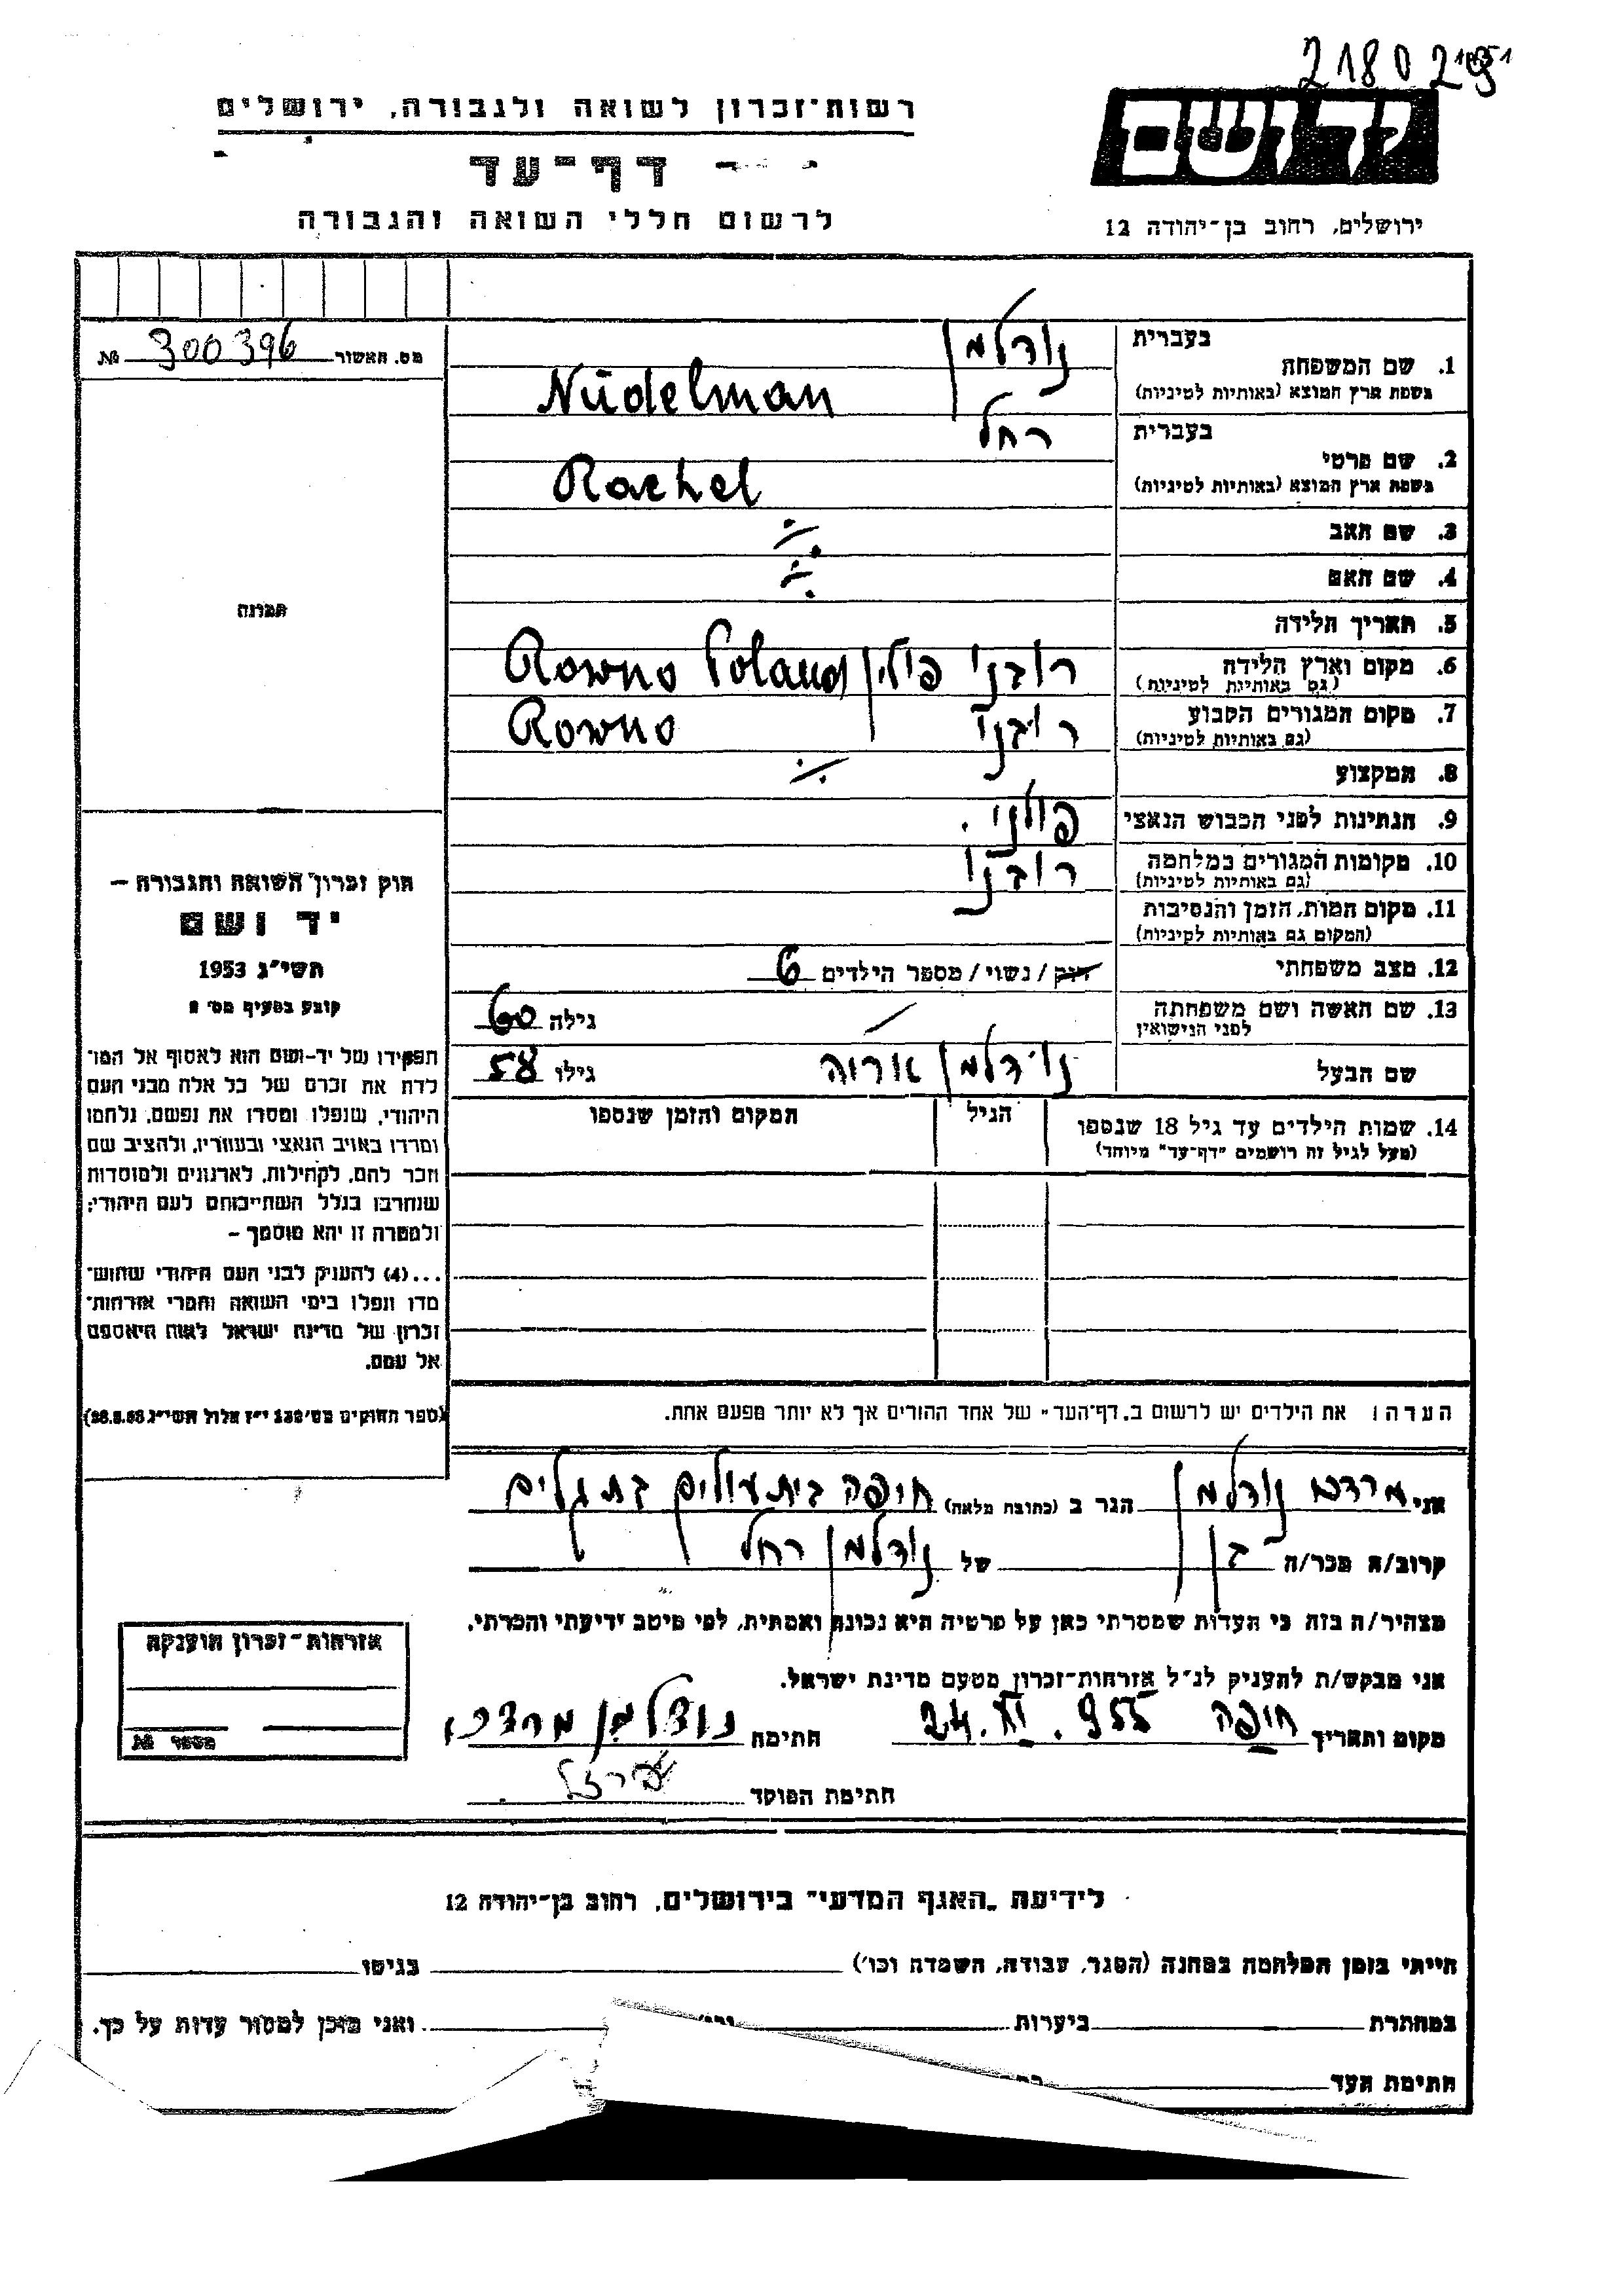 218029
רשות־זכרון לשואה ולגבורה, ירושלים
יד ושם
דף־עד
לרשום חללי השואה והגבורה
ירושלים, רחוב בן־יהודה 12
מס. האשור 300396 №
בעברית נודלמן
1. שם המשפחה
בשפת ארץ המוצא (באותיות לטיניות) Nüdelman
בעברית רחל
2. שם פרטי
בשפת ארץ המוצא (באותיות לטיניות) Rachel
3. שם האב ./.
4. שם האם ./.
5. תאריך הלידה
6. מקום וארץ הלידה רובני פולין Rowno Poland
(גם באותיות לטיניות)
7. מקום המגורים הקבוע רובני Rowno
(גם באותיות לטיניות)
8. המקצוע ./.
9. הנתינות לפני הכבוש הנאצי פולני.
10. מקומות המגורים במלחמה רובני
(גם באותיות לטיניות)
11. מקום המות, הזמן והנסיבות
(המקום גם באותיות לטיניות)
12. מצב משפחתי רווק / נשוי / מספר הילדים 6
13. שם האשה ושם משפחתה גילה 60
לפני הנישואין
שם הבעל נודלמן אריה גילו 58
14. שמות הילדים עד גיל 18 שנספו הגיל המקום והזמן שנספו
(מעל לגיל זה רושמים "דף־עד" מיוחד)
תמונה
חוק זכרון השואה והגבורה –
יד ושם
תשי״ג 1953
קובע בסעיף מס׳ 2
תפקידו של יד-ושם הוא לאסוף אל המו־
לדת את זכרם של כל אלה מבני העם
היהודי, שנפלו ומסרו את נפשם, נלחמו
ומרדו באויב הנאצי ובעוזריו, ולהציב שם
וזכר להם, לקהילות, לארגונים ולמוסדות
שנחרבו בגלל השתייכותם לעם היהודי;
ולמטרה זו יהא מוסמך –
...(4) להעניק לבני העם היהודי שהוש־
מדו ונפלו בימי השואה והמרי אזרחות־
זכרון של מדינת ישראל לאות היאספם
אל עמם.
(ספר החוקים מס׳ 132 י״ז אלול תשי״ג 28.8.53)
הערה: את הילדים יש לרשום ב„דף־העד״ של אחד ההורים אך לא יותר מפעם אחת.
אני מרדכי נודלמן הגר ב (כתובת מלאה) חיפה בית עולים בת גלים
קרוב/ה מכר/ה בן של נודלמן רחל
מצהיר/ה בזה כי העדות שמסרתי כאן על פרטיה היא נכונה ואמתית, לפי מיטב ידיעתי והכרתי.
אני מבקש/ת להעניק לנ״ל אזרחות־זכרון מטעם מדינת ישראל.
מקום ותאריך חיפה 24.XI.955 חתימה נודלמן מרדכי
חתימת הפוקד
אזרחות־זכרון הוענקה
מספר №
לידיעת „האגף המדעי״ בירושלים, רחוב בן־יהודה 12
הייתי בזמן המלחמה במחנה (הסגר, עבודה, השמדה וכו׳) בגיטו
במחתרת ביערות ואני מוכן למסור עדות על כך.
חתימת העד